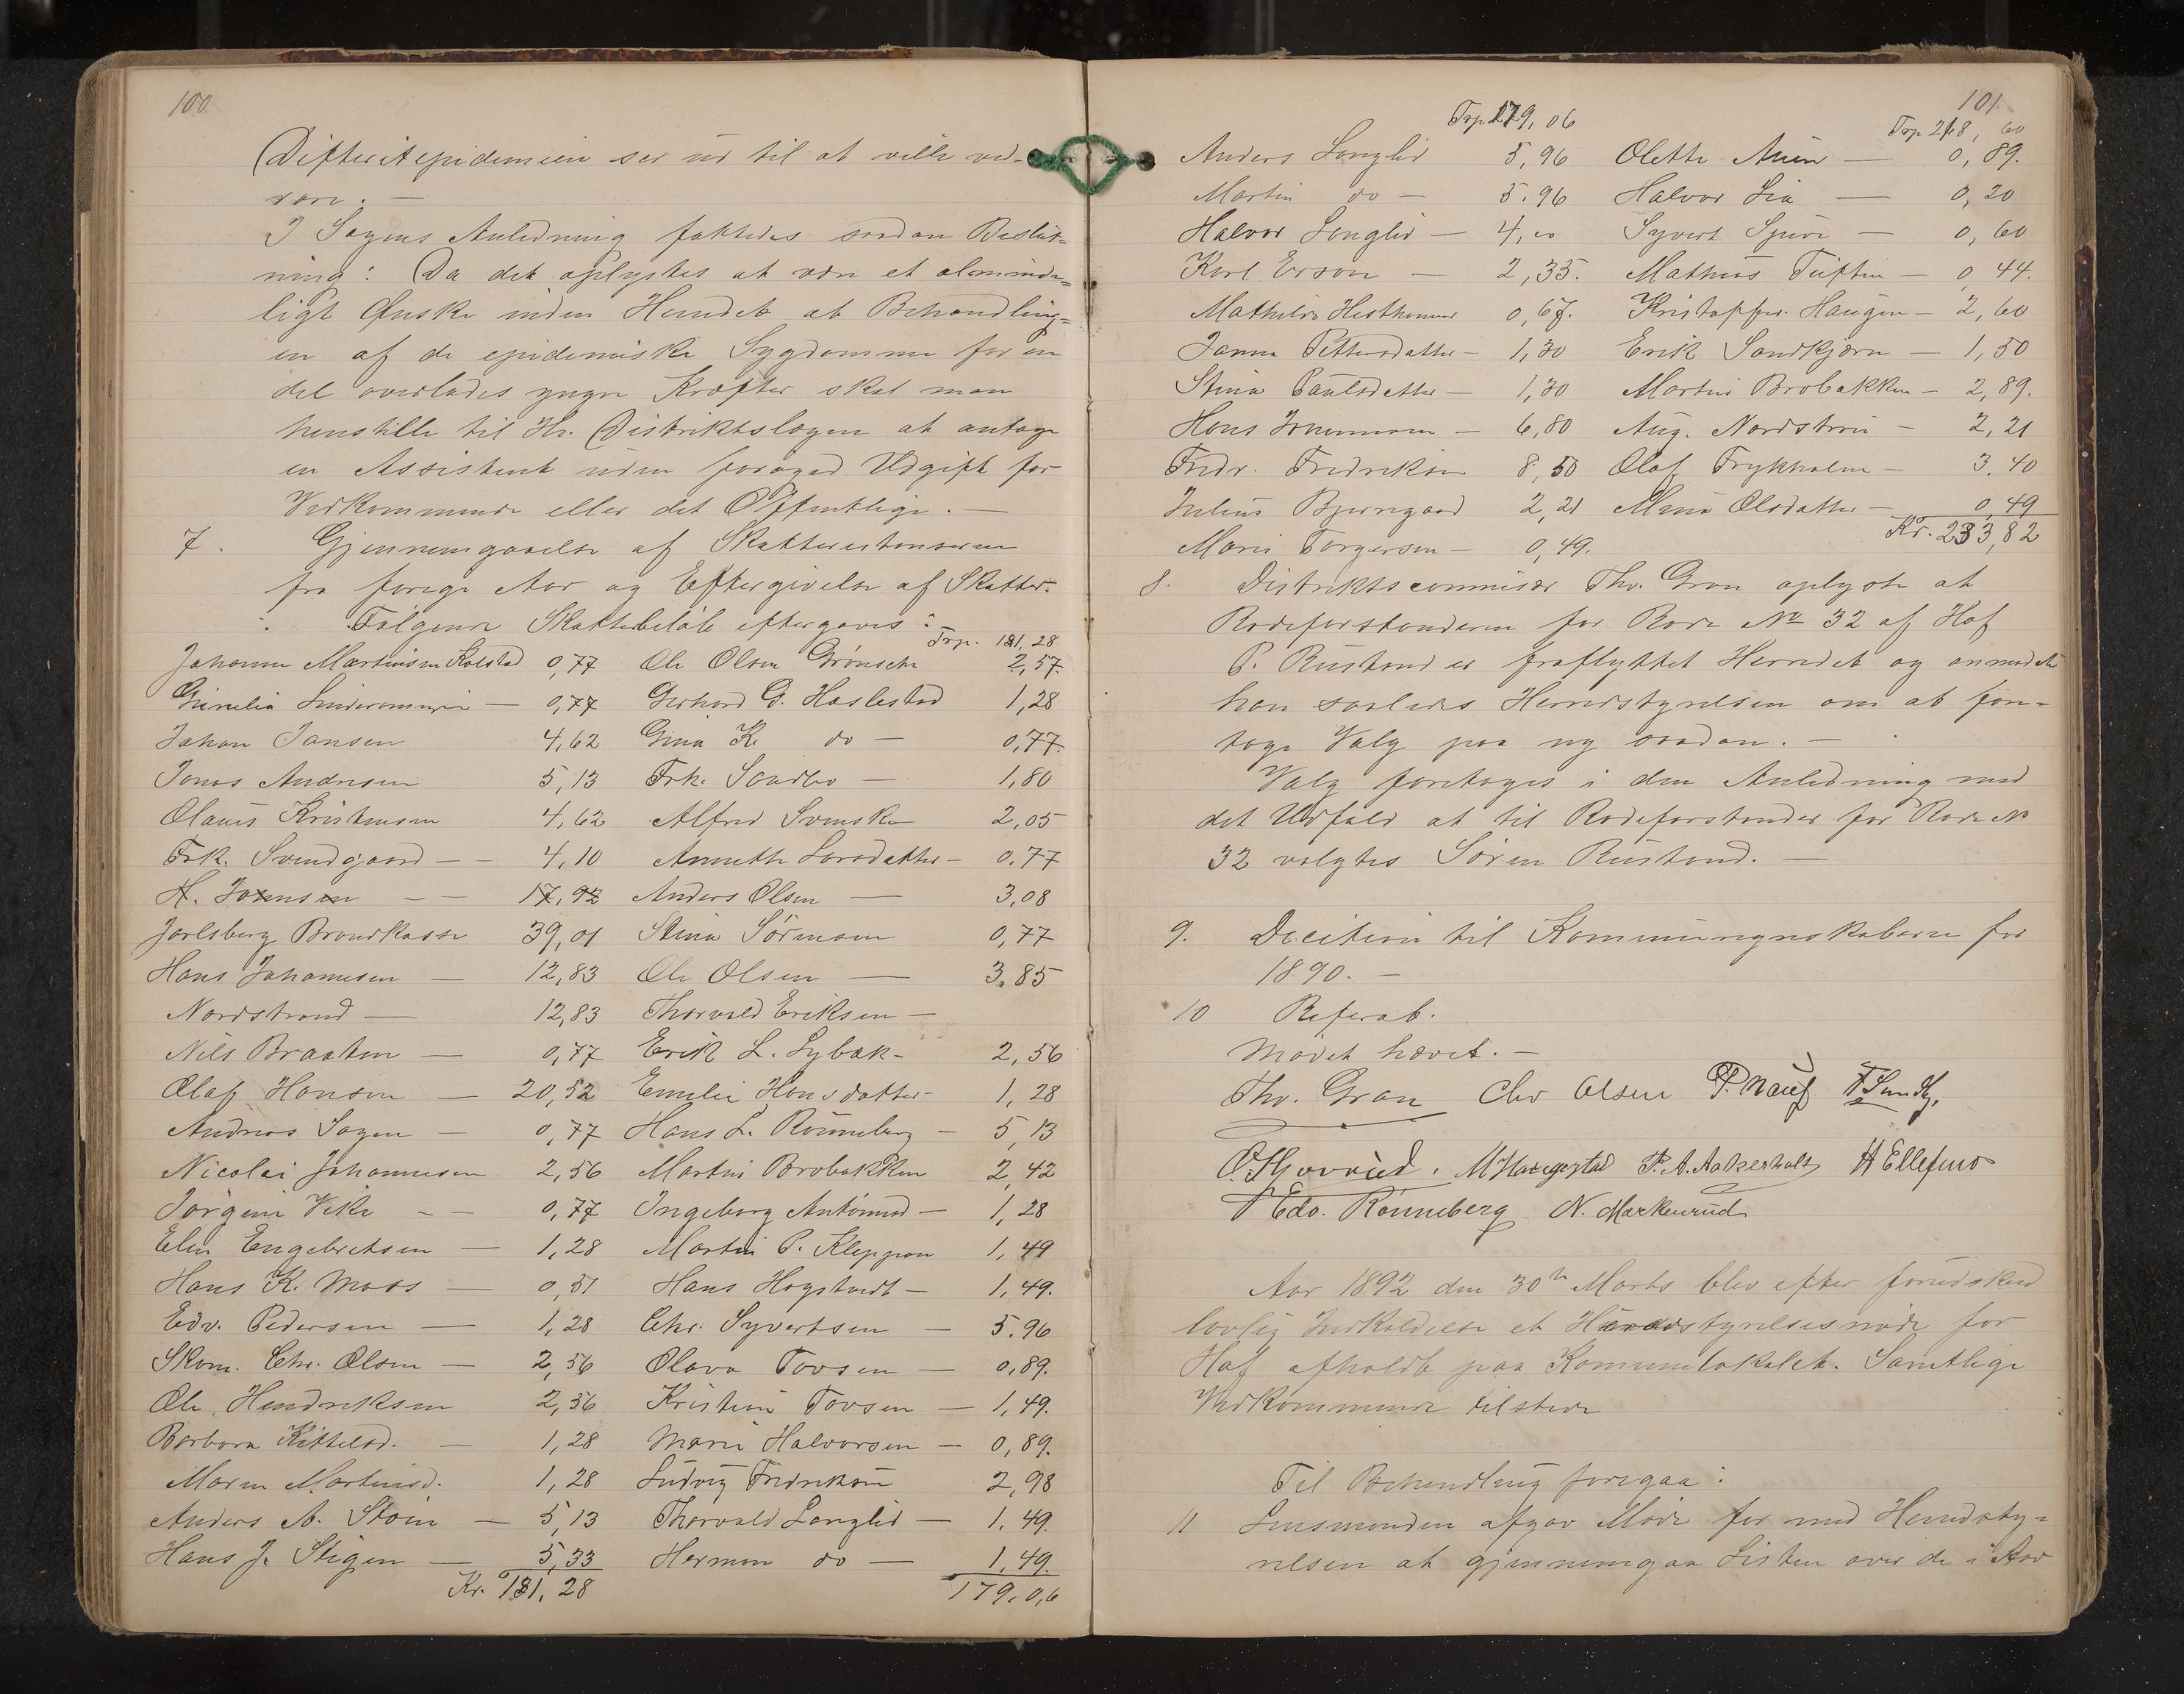 100
Difteritepidemien ser ud til at ville ved-
vare. —
I Sagens Anledning fattedes saadan Beslut=
ning: Da det oplystes at være et alminde=
ligt Ønske inden Herredet at Behandling=
en af de epidemiske Sygdomme for en
del overlades yngre Kræfter skal man
henstille til Hr. Distriktslægen at antage
en Assistent uden forøget Udgift for
Vedkommende eller det Offentlige. —
7. Gjennemgaaelse af Skatterestanserne
fra forrige Aar og Eftergivelse af Skatter.
Følgende Skattebeløb eftergaves:
Johanne Martinsen Kolstad 0,77
Gunelia — 0,77
Johan Jansen 4,62
Jonas Andresen 5,13
Olaus Kristensen 4,62
Frk. Svendgaard — 4,10
H. Joensen — 17,92
Jarlsberg Brandkasse 39,01
Hans Johannesen — 12,83
Nordstrand — 12,83
Nils Braaten — 0,77
Olaf Hansen — 20,52
Andreas Sagen — 0,77
Nicolai Johannesen 2,56
Jørgine Vike — 0,77
Elen Engebretsen — 1,28
Hans K. Moos — 0,51
Edv. Pedersen — 1,28
Skom. Chr. Olsen — 2,56
Ole Hendriksen 2,56
Barbara Kittelsd. — 1,28
Maren Martinsd. 1,28
Anders A. Støin — 5,13
Hans J. Stigen — 5,33
Kr. 131,28
Trp. 131,28
Ole Olsen Grønsehe 2,57
Gerhard G. Haslestad 1,28
Gina K. do — 0,77
Frk. Sandbo — 1,80
Alfred Svenske — 2,05
Annette Larsdatter — 0.77
Anders Olsen — 3,08
Stina Sörensen 0,77
Ole Olsen — 3.85
Thorvald Eriksen —
Erik L. Lybæk — 2,56
Emelie Hansdatter — 1,28
Hans L. Rönneberg — 5,13
Martin Brobakken 2,42
Ingeborg Antonsd — 1,28
Martin P. Kleppan 1,49
Hans Hogstvedt — 1,49.
Chr. Syvertsen — 5.96
Olava Tovsen — 0,89.
Kristian Tovsen — 1,49.
Marie Halvorsen — 0,89.
Ludvig Fredriksen 2,98
Thorvald Langlid — 1.49.
Herman do — 1,49.
179,06
101
Trp 179,06
Anders Langlid 5,96
Martin do — 5.96
Halvor Langlid — 4,00
Karl Erson — 2,35.
Mathilde Hesthammer 0,67.
Janna Pettersdatter — 1,30
Stina Paulsdatter — 1,30
Hans Ironmoen — 6,80
Fredr. Fredriksen 8,50
Julius Bjerregaard 2,21
Marie Torgersen — 0,49.
Trp 218,60
Olette Auen — 0,89.
Halvor Lia — 0,20
Syvert Sjuve — 0,60
Mathias Tuften — 0,44.
Kristoffer Haugen — 2,60
Erik Sandkjærn — 1,50
Martin Brobakken — 2,89.
Aug. Nordstrøm — 2,21
Olof Frykholm — 3.40
Mina Olsdatter — 0,49
Kr. 233,82
8. Distriktscommisær Thv. Gran oplyste at
Rodeforstanderen for Rode No 32 af Hof
P. Rustand er fraflyttet Herredet og anmodede
han saaledes Herredstyrelsen om at fore=
tage Valg paa ny saadan. —
Valg foretoges i den Anledning med
det Udfald at til Rodeforstander for Rode No
32 valgtes Søren Rustand. —
9. Decition til Kommuneregnskaberne for
1890. —
10 Referat.
Mødet hævet. —
Thv. Gran Chr Olsen P. Nauf F Sundby.
O. Hjovrud. M Haugestad P. A. Aakesholt H Ellefsen
Edv. Rönneberg N. Markerud
Aar 1892 den 30te Marts blev efter forudskeed
lovlig Indkaldelse et Herredstyrelsesmøde for
Hof afholdt paa Komunelokalet. Samtlige
Vedkommende tilstede
Til Behandling foregaa:
11 Lensmanden afgav Møde for med Herredsty=
relsen at gjennemgaa Listen over de i Aar